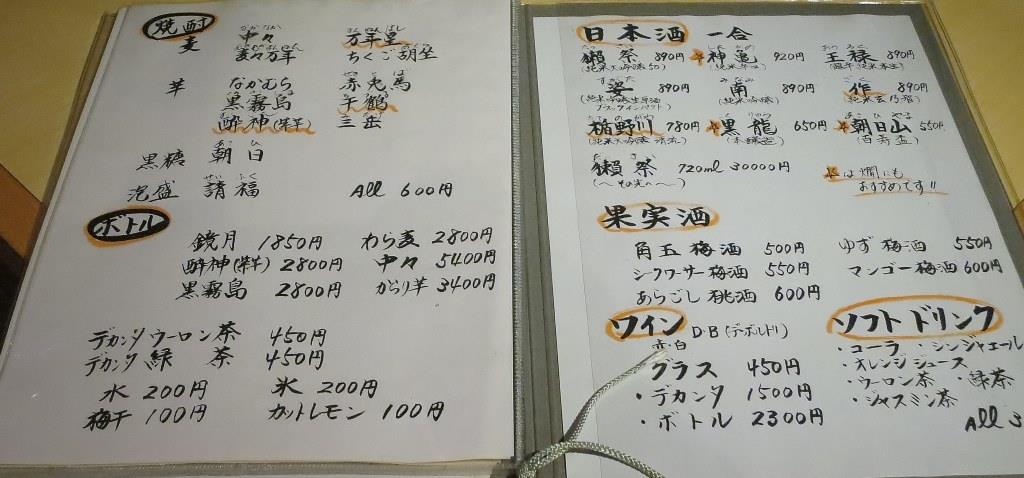 焼酎
麦 中々 万年星
麦々万年 ちくご胡坐
芋 なかむら 赤兎馬
黒霧島 千鶴
酔神(紫芋) 三岳
黒糖 朝日
泡盛 請福 All 600円
ボトル
鏡月 1850円 わら麦 2800円
酔神(紫芋) 2800円 中々 5400円
黒霧島 2800円 がらり芋 3400円
デカンタ ウーロン茶 450円
デカンタ 緑茶 450円
水 200円 氷 200円
梅干 100円 カットレモン 100円
日本酒 一合
獺祭 890円 神亀 920円 王禄 890円
(純米大吟醸50)
姿 890円 南 890円 作 890円
(純米吟醸)
楯野川 780円 黒龍 650円 朝日山 550円
(百寿盃)
獺祭 720ml 30000円
(〜その先へ〜)
は燗にも
おすすめです!!
果実酒
角玉梅酒 500円 ゆず梅酒 550円
シークワーサー梅酒 550円 マンゴー梅酒 600円
あらごし桃酒 600円
ワイン D・B(デボルトリ)
赤・白
グラス 450円
・デカンタ 1500円
・ボトル 2300円
ソフトドリンク
・コーラ ・ジンジャエール
・オレンジジュース
・ウーロン茶 ・緑茶
・ジャスミン茶
All 3